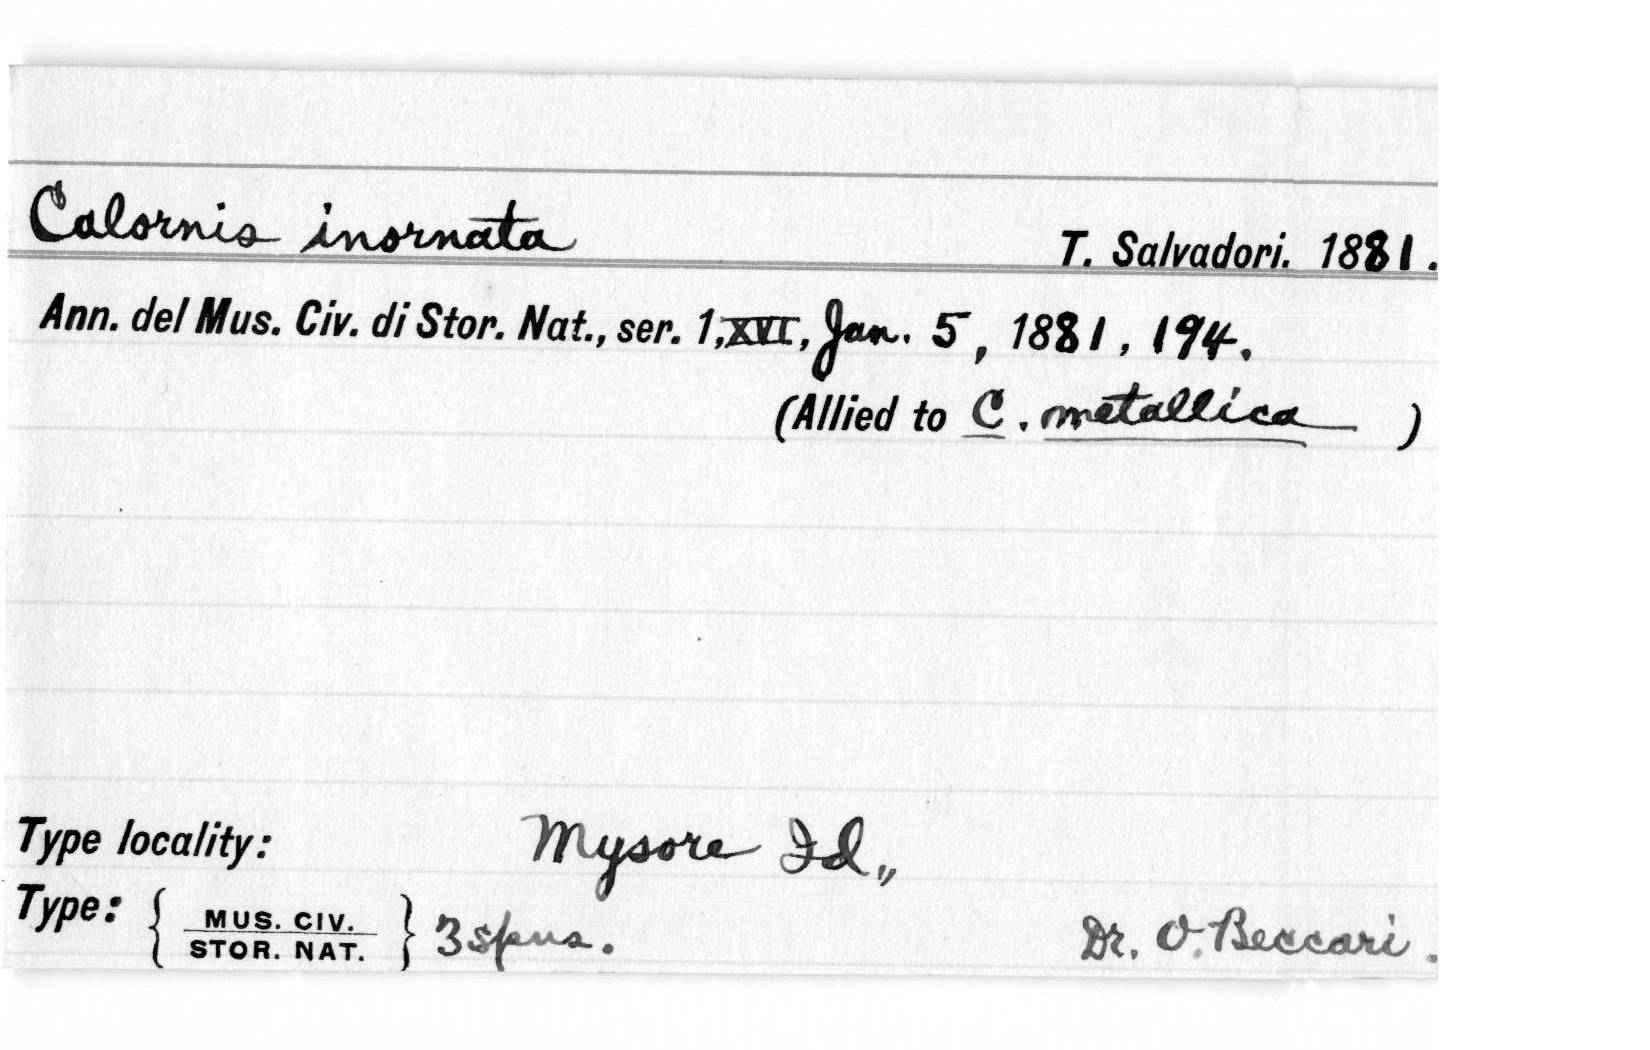 Calornis inornata T. Salvadori. 1881.
Ann. del Mus. Civ. di Stor. Nat., ser. 1, XVI, Jan. 5, 1881, 194.
(Allied to C. metallica )
Type locality: Mysore Id.,
Type: { MUS. CIV. STOR. NAT. } 3 spns. Dr. O. Beccari.